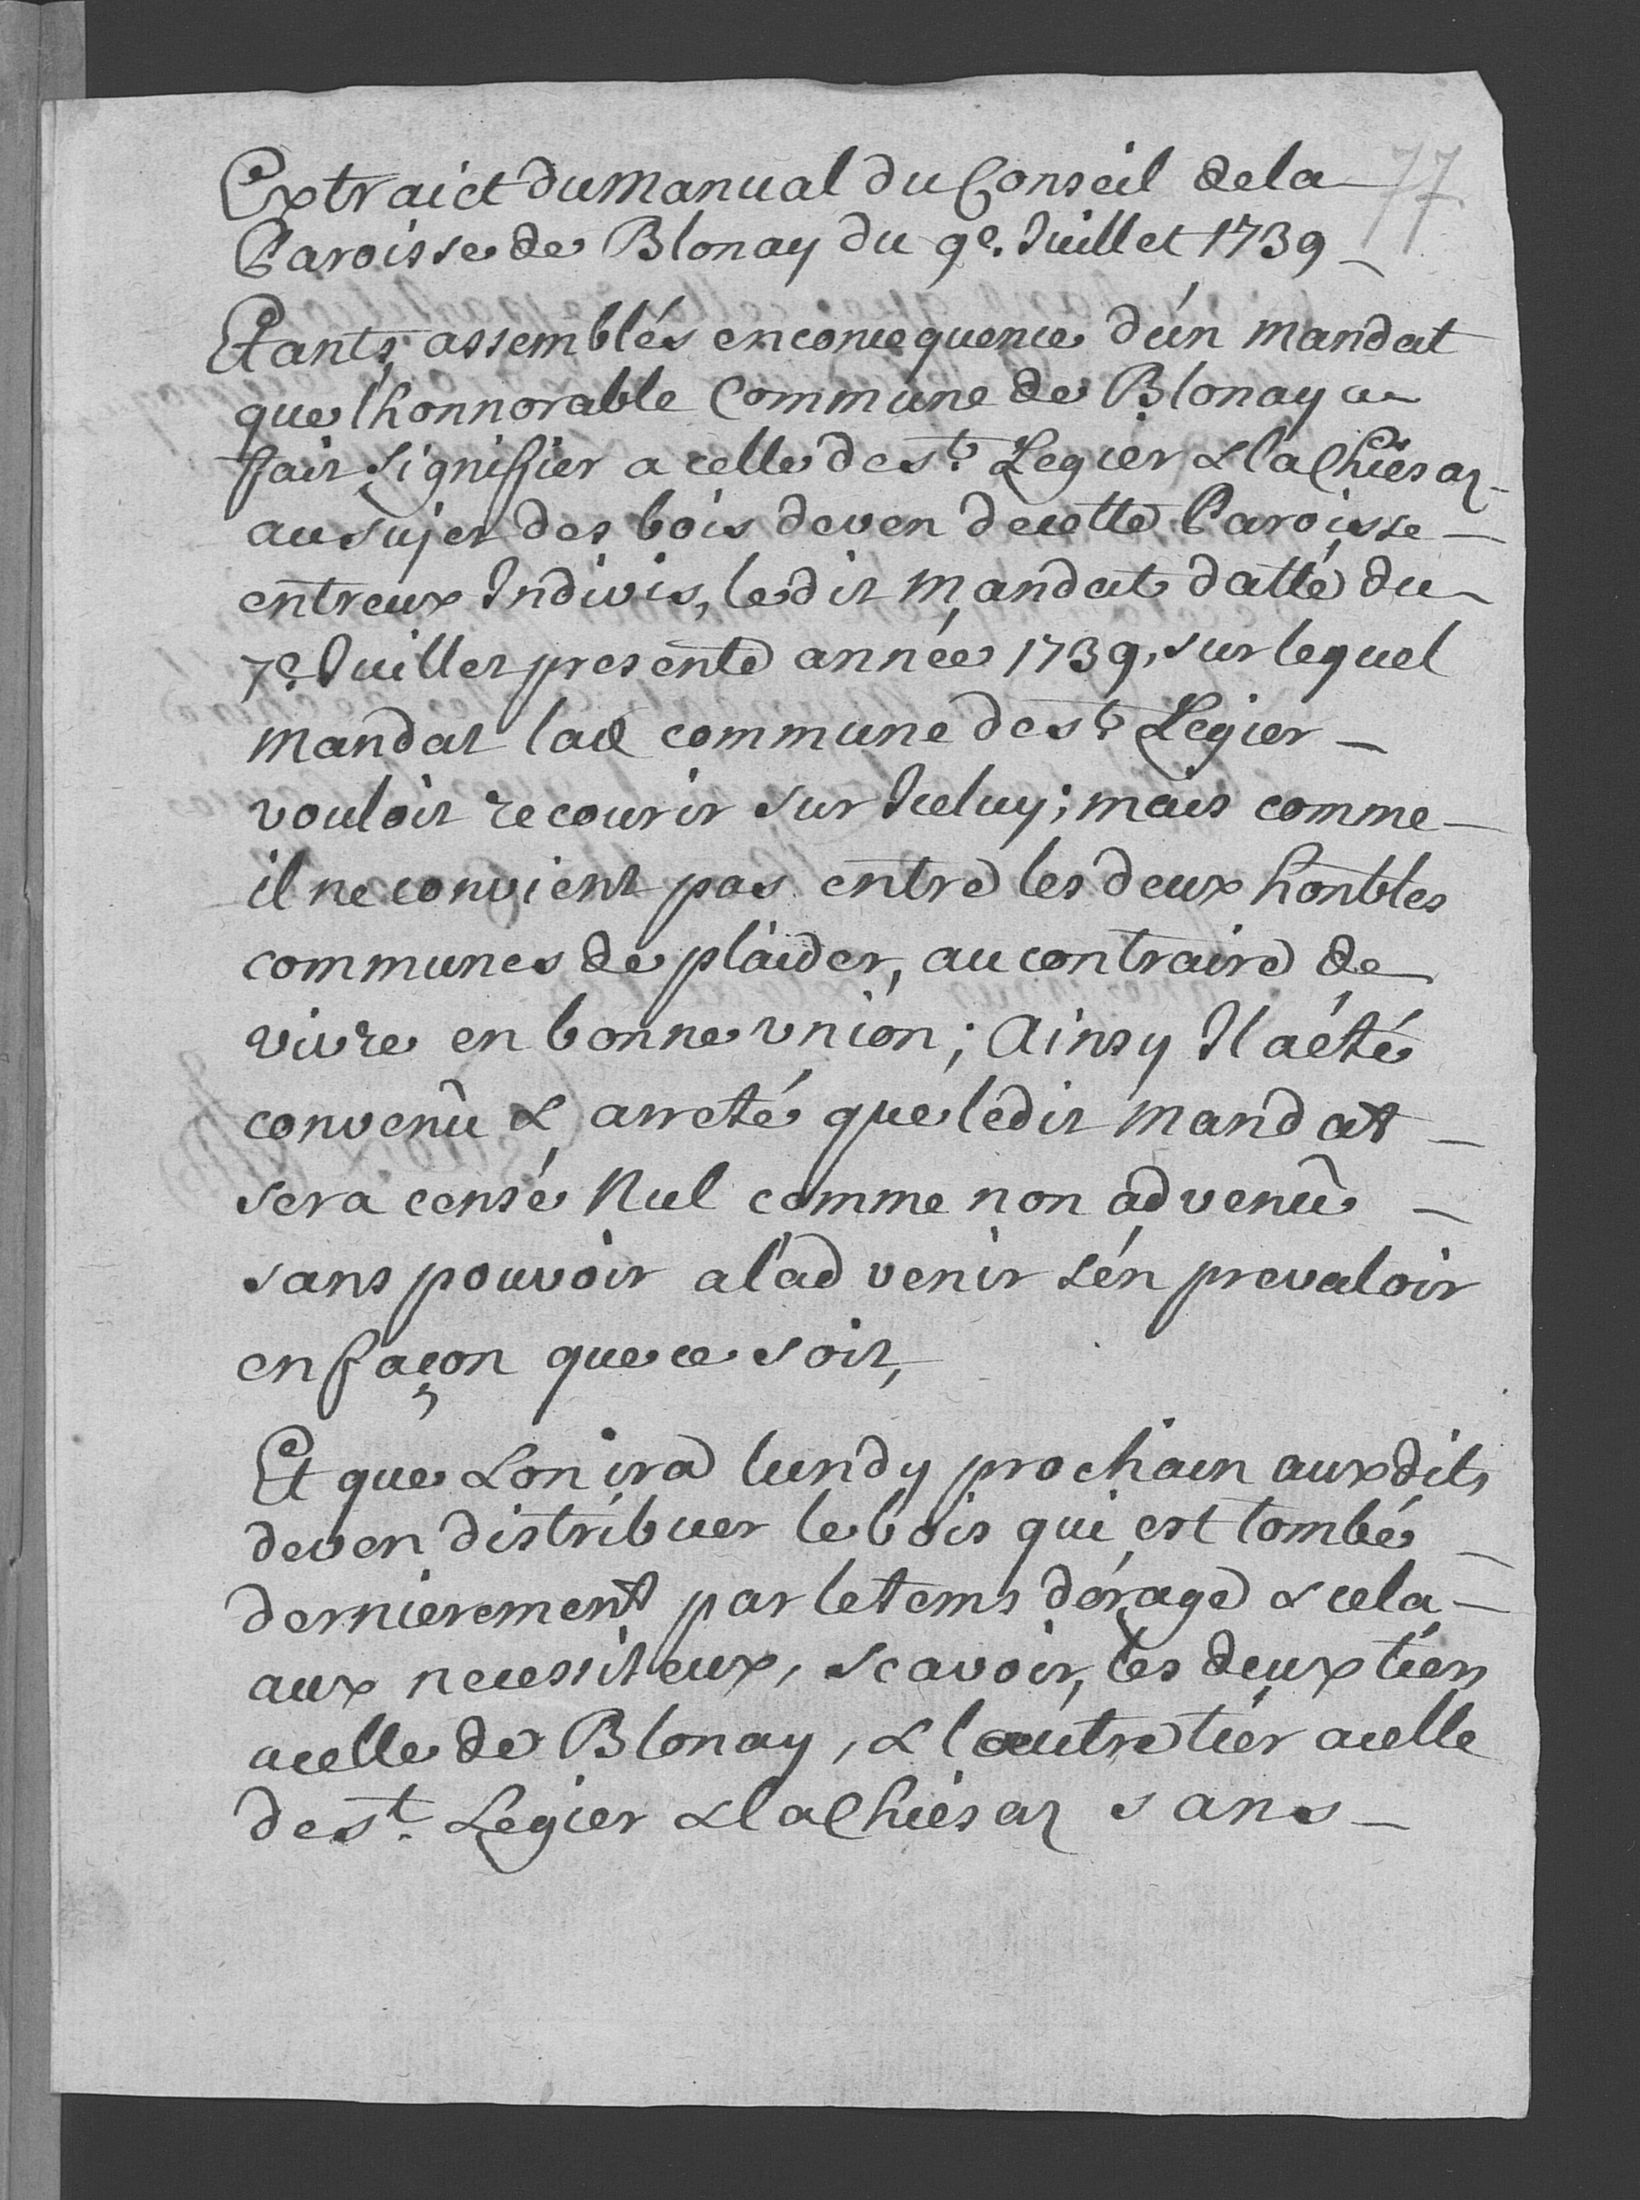 Extraict du Manual du Conseil de la 77
Paroisse de Blonay du 9e. Juillet 1739
Etants assemblés en consequence d'un mandat
que l'honnorable Commune de Blonay a
fait signiffier a celle de st. Legier & la Chiésaz
au sujet des bois deven de cette Paroisse
entreux Indivis, le dit Mandat datté du
7e. Juillet presente année 1739, sur lequel
mandat lad commune de st. Legier
vouloit recourir sur Iceluy; mais comme
il ne convient pas entre les deux honbles
communes de plaider, au contraire de
vivre en bonne union; Ainsy Il a été
convenû & arreté que ledit Mandat
sera censé Nul comme non advenû
sans pouvoir a l'advenir s'en prevaloir
en façon que ce soit,
Et que Lon ira lundy prochain auxdits
deven distribuer le bois qui est tombé
dernierement par le tems dórage & cela
aux necessiteux, scavoir, les deux tiers
a celle de Blonay, & l'autre tier a celle
de st. Legier & la Chiésaz sans